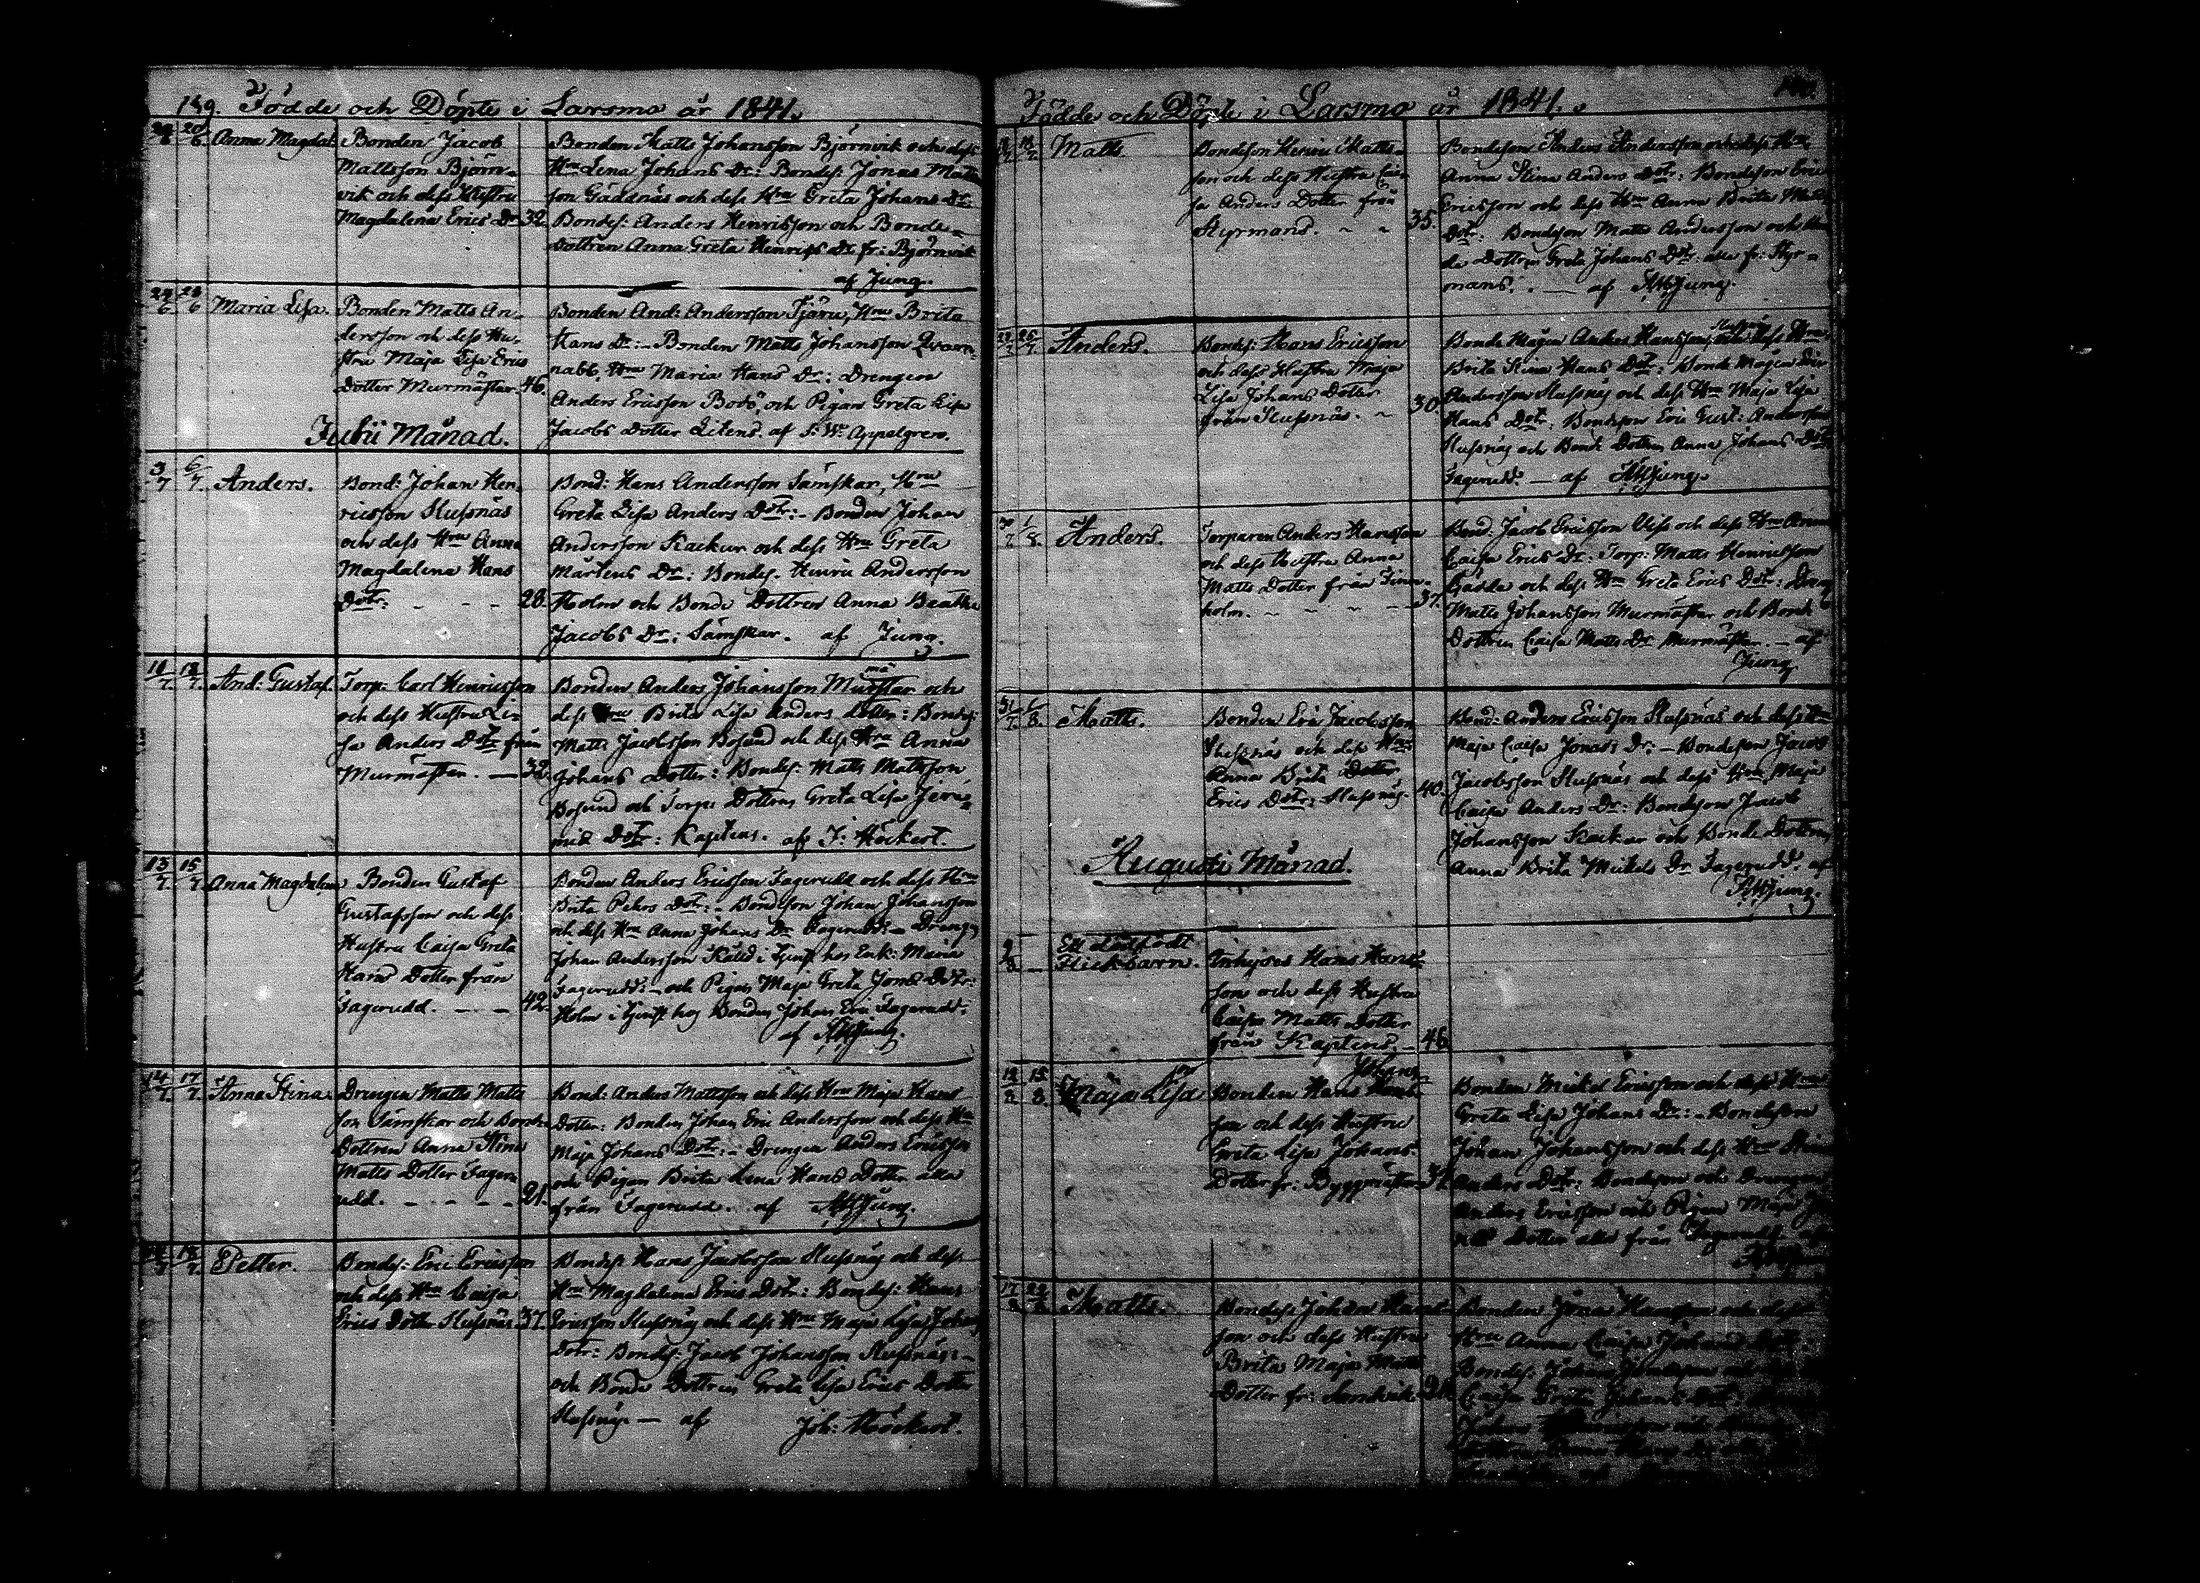 139. Födde och Döpte i Larsmo år 1841.
20/6 Anna Magdal.
Bonden Jacob
Mattsson Björn-
vik och dess Hustru
Magdalena Erics Dr 32.
Bonden Matts Johansson Björnvik och dess
Hru Lena Johans Dr: Bondes: Jonas Matts
son Gäddnäs och dess Hru Greta Johans Dr
Bondes: Anders Henriksson och Bonde-
dottren Anna Greta Henriks Dr fr: Björnvik
af Jung.
Maria Lisa.
Bonden Matts An-
dersson och dess Hu-
stru Maja Lisa Erics
Dotter Murmästar. 46.
Bonden And: Andersson Fjäru, Hru Brita
Hans Dr: - Bonden Matts Johansson
nabb, Hru Maria Hans Dr: Drengen
Anders Ericsson Bodö, och Pigan Greta Lisa
Jacobs Dotter Litens. af J: W: Appelgren.
Julii Månad.
3/7 6/7 Anders.
Bond: Johan Hen-
ricsson Slussnäs
och dess Hru Anna
Magdalena Hans
Dotr: - - - - 28.
Bond: Hans Andersson Sämskar, Hru
Greta Lisa Anders Dotr: - Bonden Johan
Andersson Kackur och dess Hru Greta
Mårtens Dr: Bondes. Henric Andersson
Holm och Bonde Dottren Anna Beatha
Jacobs Dr: Sämskar. af Jung.
And: Gustaf.
Torp: Carl Henricsson
och dess Hustru Li-
sa Anders Dotr från
Murmästar. — 32.
Bonden Anders Johansson Murmästar och
dess Hru Brita Lisa Anders Dotter: Bondes:
Matts Jacobsson Bosund och dess Hru Anna
Johans Dotter: Bondes: Matts Mattsson
Bosund och Torp: Dottren Greta Lisa Jere-
mias Dotr: Kaptens. af J: Höckert.
13/7 15/7 Anna Magdalena
Bonden Gustaf
Gustafsson och dess
Hustru Caisa Greta
Hans Dotter från
Fagerudd. - - - 42.
Bonden Anders Ericsson Fagerudd och dess Hru
Brita Peters Dotr: - Bondeson Johan Johansson
och dess Hru Anna Johans Dr Fagerudd: - Dreng:
Johan Andersson i tjenst hos Enk: Maria
Fagerudd: - och Pigan Maja Greta Jons Dotr:
Holm i tjenst hos Bonden Johan Eric Fagerudd:
af Jung.
14/7 17/7 Anna Stina.
Drengen Matts Matts
son Sämskar och Bonde
Dottren Anna Stina
Matts Dotter Fager-
udd. - - - - - 21.
Bond: Anders Mattsson och dess Hru Maja Hans
Dotter: Bonden Johan Eric Andersson och dess Hru
Maja Johans Dotr: - Drengen Anders Ericsson
och Pigan Brita Lena Hans Dotter alla
från Fagerudd. af Jung.
Petter.
Bondes: Eric Ericsson
och dess Hru Caisa
Erics Dotter Slussnäs. 37.
Bondes: Hans Jacobsson Slussnäs och dess
Hru Magdalena Erics Dotr: Bondes: Hans
Ericsson Slussnäs och dess Hru Maja Lisa Johans
Dotr: Bondes: Jacob Johansson Slussnäs: -
och Bonde Dottren Greta Lisa Erics Dotter
Slussnäs — af Joh: Höckert.
Födde och Döpte i Larsmo år 1841. 140.
Matts.
Bondeson Henric Matts-
son och dess Hustru Cai-
sa Anders Dotter från
Styrmans. - - 35.
Bondeson Anders Andersson och dess Hru
Anna Stina Anders Dotr: Bondeson Eric
Ericsson och dess Hru Anna Brita Matts
Dotr: Bondeson Matts Andersson och Bon
de Dottren Greta Johans Dotr: alla fr: Styr-
mans. — af Jung.
Anders.
Bondes: Hans Ericsson
och dess Hustru Maja
Lisa Johans Dotter
från Slussnäs. - 30.
Bonde Mågen Anders Hansson Slussnäs och dess Hru
Brita Stina Hans Dotr: Bonde Mågen Eric
Andersson Slussnäs och dess Hru Maja Lisa
Hans Dotr. Bondeson Eric Gust: Andersson
Slussnäs och Bonde Dottren Anna Johans Dotr
Fagerudd. — af Jung.
1/8 Anders.
Torparen Anders Hansson
och dess Hustru Anna
Matts Dotter från Finn-
holm. - - - - 37.
Bond: Jacob Ericsson och dess Hru Anna
Caisa Erics Dr: Torp: Matts Henricsson
Gädda och dess Hru Greta Erics Dotr: Dreng
Matts Johansson Murmästar och Bonde
Dottren Caisa Matts Dr Murmästar. — af
Jung.
31/7 6/8 Matts.
Bonden Eric Jacobsson
Slussnäs och dess Hru
Anna Brita Dotter
Erics Dotr: Slussnäs. 40.
Bond: Anders Ericsson Slussnäs och dess Hru
Maja Caisa Jonas Dr: - Bondeson Jacob
Jacobsson Slussnäs och dess Hru Maja
Caisa Anders Dr: Bondeson Jacob
Johansson Kackur och Bonde Dottren
Anna Brita Mickels Dr Fagerudd. af
Jung.
Augusti Månad.
9/8 Ett dödfödt
Flickbarn.
Inhyses Hans Hans-
son och dess Hustru
Caisa Matts Dotter
från Kaptens. - 46
15/8 Maja Lisa
Bonden Hans Johans
son och dess Hustru
Greta Lisa Johans
Dotter fr: Byggmästar 37
Bonden Mickel Ericsson och dess Hru
Greta Lisa Johans Dr: - Bondeson
Johan Johansson och dess Hru Stina
Anders Dotr: Bondeson och Drengen
Anders Ericsson och Pigan Maja
Dotter alla från Fagerudd
17/8 Matts.
Bondes: Johan Hans-
son och dess Hustru
Brita Maja Matts
Dotter fr: Sandvik
Bonden Jonas Hansson och dess
Hru Anna Caisa Johans Dotr
Bondes: Johan
Caisa Greta Johans Dotr